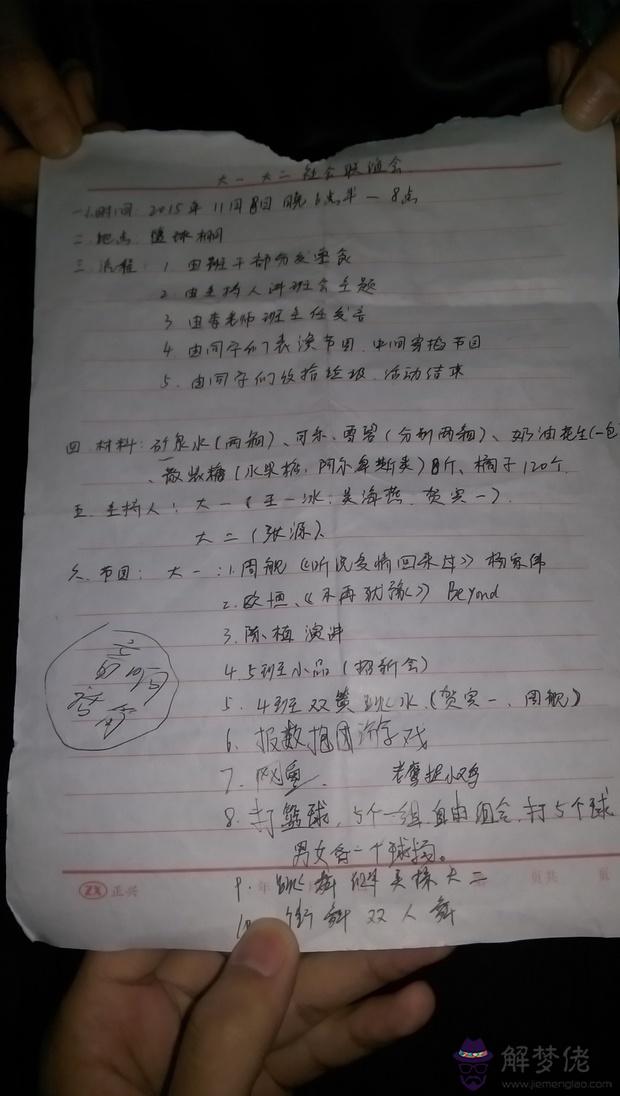 大一 大二 社会联谊会
一.时间: 2015年11月8日 晚6点半 — 8点
二.地点: 篮球棚
三.流程: 1. 由班干部分发零食
2. 由主持人讲班会主题
3. 由李老师班主任发言
4. 由同学们表演节目.中间穿插节目
5. 由同学们收拾垃圾.活动结束
四.材料: 矿泉水(两箱)、可乐、雪碧(分别两箱)、奶油花生(一包
、散装糖(水果糖,阿尔卑斯类)8斤、橘子120个
五.主持人: 大一(王一冰;吴海燕.贺实一).
大二(张源).
六.节目: 大一:1.周舰《听说爱情回来过》杨宗纬
2.欧恒、《不再犹豫》Beyond
3.陈梅 演讲
4.5班小品(招新会)
5. 4班双簧 跳水(贺实一、周舰)
6. 报数抱团游戏
7. 网鱼 老鹰捉小鸡
8. 打篮球,5个一组.自由组合,打5个球
男女各一个球场。
正兴 年 页共 页
9. 跳舞 大二
10 街舞 双人舞